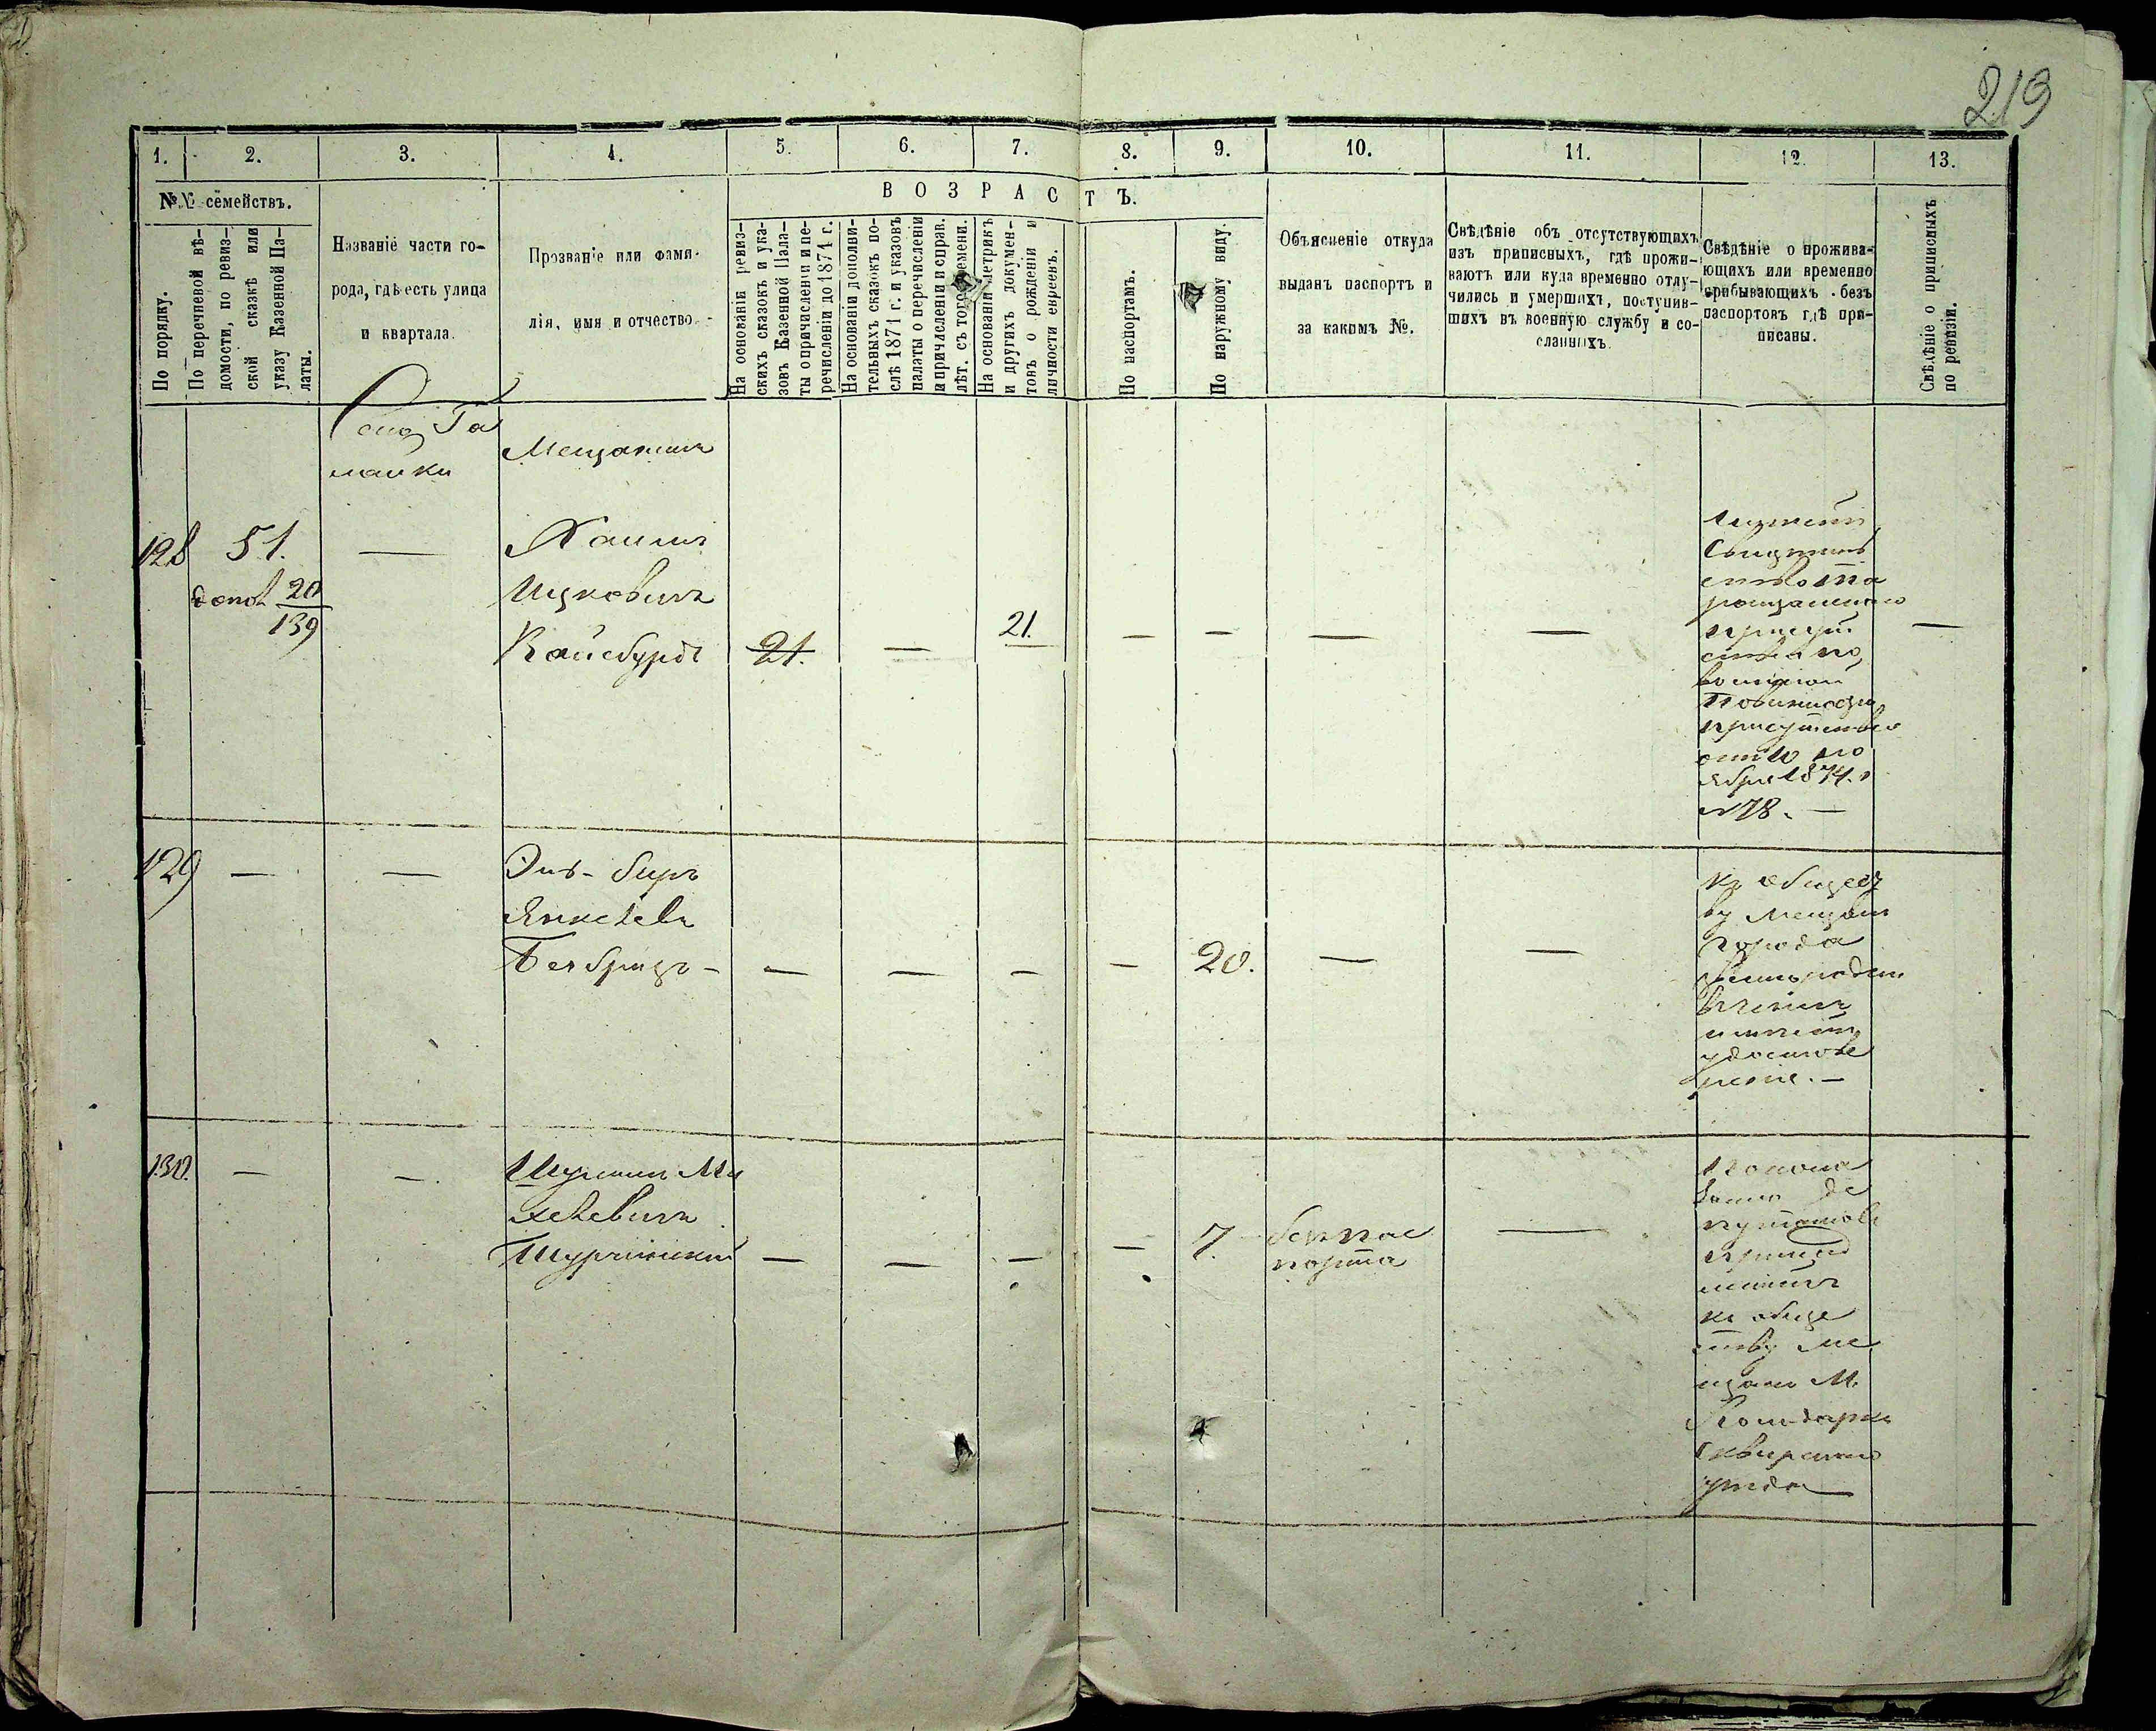 219
1. 2. 3. 4. 5. 6. 7. 8. 9. 10. 11. 12. 13.
№№ семействъ.
По порядку.
По перечневой вѣ-
домости, по ревиз-
ской сказкѣ или
указу Казенной Па-
латы.
Названіе части го-
рода, гдѣ есть улица
и квартала.
Прозваніе или фами-
лія, имя и отчество.
ВОЗРАСТЪ.
На основаніи ревиз-
скихъ сказокъ и ука-
зовъ Казенной Пала-
ты о причисленіи и пе-
речисленіи до 1871 г.
На основаніи дополни-
тельныхъ сказокъ по-
слѣ 1871 г. и указовъ
палаты о перечисленіи
и причисленіи и справ.
лѣт. съ того времени.
На основаніи метрикъ
и другихъ докумен-
товъ о рожденіи и
личности евреевъ.
По паспортамъ.
По наружному виду.
Объясненіе откуда
выданъ паспортъ и
за какимъ №.
Свѣдѣніе объ отсутствующихъ
изъ приписныхъ, гдѣ прожи-
ваютъ или куда временно отлу-
чились и умершихъ, поступив-
шихъ въ военную службу и со-
сланныхъ.
Свѣдѣніе о прожива-
ющихъ или временно
прибывающихъ безъ
паспортовъ гдѣ при-
писаны.
Свѣдѣніе о приписныхъ
по ревизіи.
Мещанинъ
128 51. — Хаимъ
допол 20
139
Ицковичъ
Кайсбурдъ 21. — 21. — — — — —
Имѣетъ
Свидѣтель
ство
присут
ствія по
воинской
Повинности
ября 1874 г
№78. —
129 — — Эль-беръ
Янкелевъ
— — — — 20. — —
къ общест
ву Мещанъ
города
имѣетъ
удостове
реніе. —
130. — — Шулимъ Ми
хелевичъ
— — — — 7. безъ пас
порта —
къ обще
ству ме
щанъ М.
Сквирскаго
уѣзда